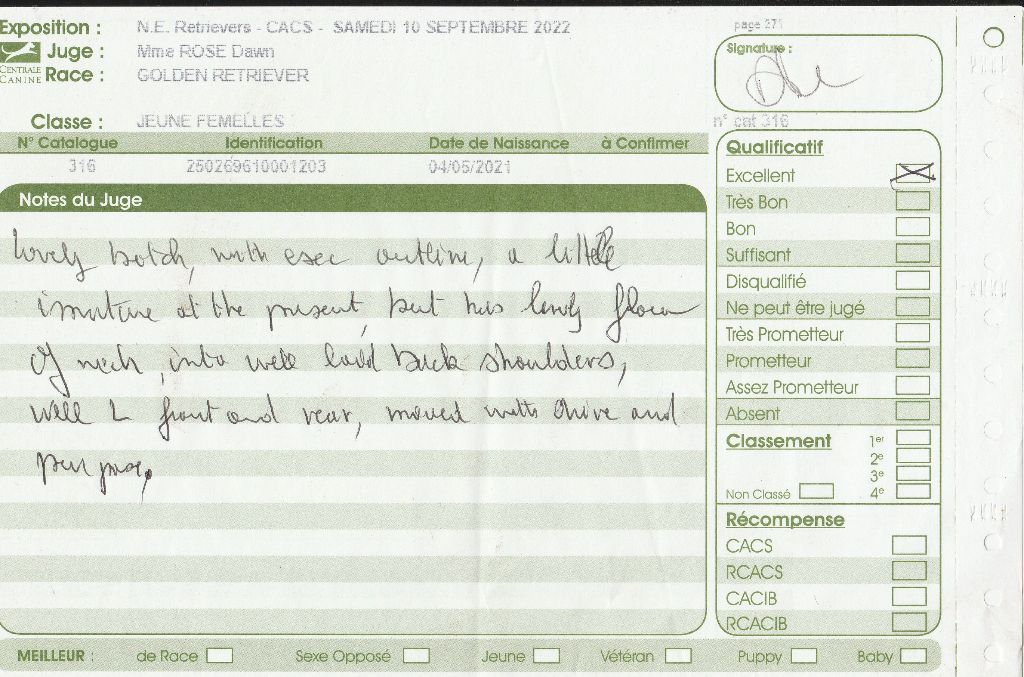 Exposition : N.E. Retrievers - CACS - SAMEDI 10 SEPTEMBRE 2022
page 271
CENTRALE CANINE
Juge : Mme ROSE Dawn
Race : GOLDEN RETRIEVER
Signature :
Classe : JEUNE FEMELLES
n° cat 316
N° Catalogue Identification Date de Naissance à Confirmer
316 250269610001203 04/05/2021
Notes du Juge
lovely botch, with exec outline, a little
imature at the present, but has lovely flow
of neck, into well laid back shoulders,
well L front and rear, moved with drive and
purpose.
Qualificatif
Excellent
Très Bon
Bon
Suffisant
Disqualifié
Ne peut être jugé
Très Prometteur
Prometteur
Assez Prometteur
Absent
Classement 1er
2e
3e
Non Classé 4e
Récompense
CACS
RCACS
CACIB
RCACIB
MEILLEUR : de Race Sexe Opposé Jeune Vétéran Puppy Baby